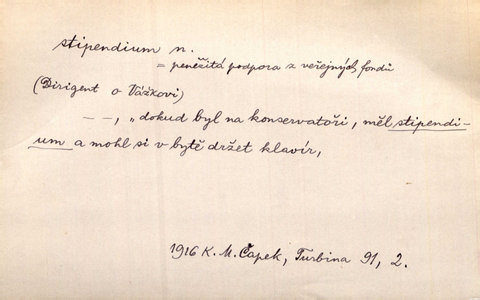 stipendium n.
= peněžitá podpora z veřejných fondů
(Dirigent o Vážkovi)
– –, „dokud byl na konservatoři, měl stipendi-
um a mohl si v bytě držet klavír,
1916 K. M. Čapek, Turbina 91, 2.